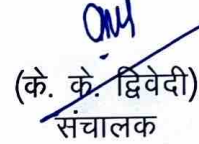 (के. के. द्विवेदी)
संचालक